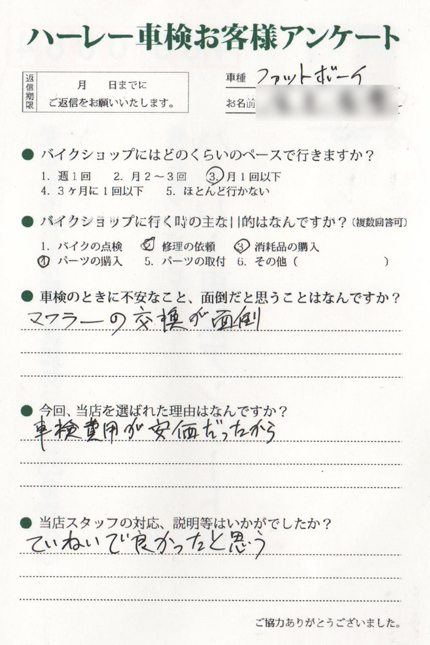 ハーレー車検お客様アンケート
返信期限
月　日までに
ご返信をお願いいたします。
車種 ファットボーイ
お名前
● バイクショップにはどのくらいのペースで行きますか？
1. 週1回　2. 月2～3回　3. 月1回以下
4. 3ヶ月に1回以下　5. ほとんど行かない
● バイクショップに行く時の主な目的はなんですか？（複数回答可）
1. バイクの点検　2. 修理の依頼　3. 消耗品の購入
4. パーツの購入　5. パーツの取付　6. その他（　　　）
● 車検のときに不安なこと、面倒だと思うことはなんですか？
マフラーの交換が面倒
● 今回、当店を選ばれた理由はなんですか？
車検費用が安価だったから
● 当店スタッフの対応、説明等はいかがでしたか？
ていねいで良かったと思う
ご協力ありがとうございました。